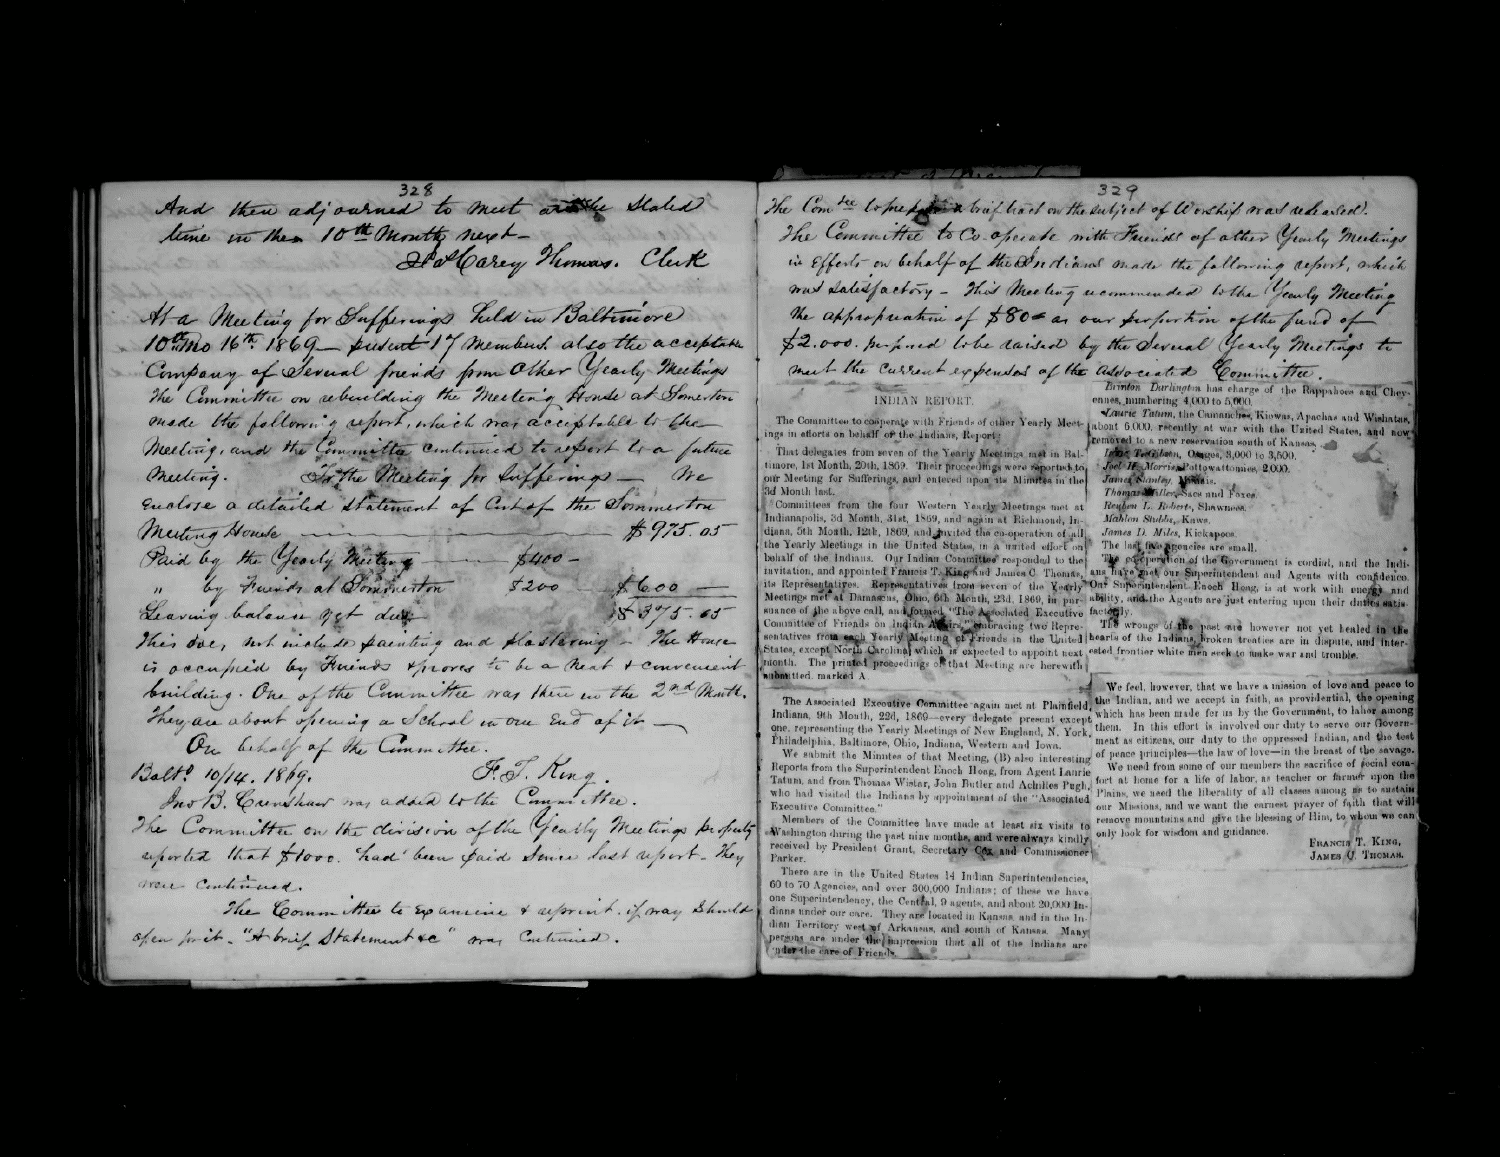 328
And then adjourned to meet at the stated
time in the 10th Month next -
Jas Carey Thomas. Clerk
At a Meeting for Sufferings held in Baltimore
10th mo 16th 1869 - present 17 members also the acceptable
Company of Several friends from other Yearly Meetings
The Committee on rebuilding the Meeting House at Somerton
made the following report, which was acceptable to the
Meeting, and the Committee continued to report to a future
Meeting. To the Meeting for Sufferings - We
enclose a detailed statement of Cost of the Sommerton
Meeting House $975.05
Paid by the Yearly Meeting $400 -
" by Friends at Sommerton $200 $600 -
Leaving balance yet due $375.05
This does not include painting and plastering - The House
is occupied by Friends & proves to be a neat & convenient
building. One of the Committee was there in the 2nd Month.
They are about opening a School in one end of it -
On behalf of the Committee.
Balto 10/14. 1869. F. T. King.
Jno B. Crenshaw was added to the Committee.
The Committee on the division of the Yearly Meetings property
reported that $1000. had been paid since last report - They
were continued.
The Committee to examine & reprint, if way should
open for it - "A brief Statement &c" was Continued.
329
The Comtee to prepare a brief tract on the subject of Worship was released.
The Committee to Co-operate with Friends of other Yearly Meetings
in efforts on behalf of the Indians made the following report, which
was satisfactory - This Meeting recommended to the Yearly Meeting
the appropriation of $80 as our proportion of the fund of
$2.000. proposed to be raised by the Several Yearly Meetings to
meet the current expenses of the associated Committee.
INDIAN REPORT.
The Committee to cooperate with Friends of other Yearly Meet-
ings in efforts on behalf of the Indians, Report:
That delegates from seven of the Yearly Meetings met in Bal-
timore, 1st Month, 20th, 1869. Their proceedings were reported to
our Meeting for Sufferings, and entered upon its Minutes in the
3d Month last.
Committees from the four Western Yearly Meetings met at
Indianapolis, 3d Month, 31st, 1869, and again at Richmond, In-
diana, 5th Month, 12th, 1869, and invited the co-operation of all
the Yearly Meetings in the United States, in a united effort on
behalf of the Indians. Our Indian Committee responded to the
invitation, and appointed Francis T. King and James C. Thomas,
its Representatives. Representatives from seven of the Yearly
Meetings met at Damascus, Ohio, 6th Month, 23d, 1869, in pur-
suance of the above call, and formed "The Associated Executive
Committee of Friends on Indian Affairs," embracing two Repre-
sentatives from each Yearly Meeting of Friends in the United
States, except North Carolina, which is expected to appoint next
month. The printed proceedings of that Meeting are herewith
submitted, marked A.
The Associated Executive Committee again met at Plainfield,
Indiana, 9th Month, 22d, 1869—every delegate present except
one, representing the Yearly Meetings of New England, N. York,
Philadelphia, Baltimore, Ohio, Indiana, Western and Iowa.
We submit the Minutes of that Meeting, (B) also interesting
Reports from the Superintendent Enoch Hoag, from Agent Laurie
Tatum, and from Thomas Wistar, John Butler and Achilles Pugh,
who had visited the Indians by appointment of the "Associated
Executive Committee."
Members of the Committee have made at least six visits to
Washington during the past nine months, and were always kindly
received by President Grant, Secretary Cox and Commissioner
Parker.
There are in the United States 14 Indian Superintendencies,
60 to 70 Agencies, and over 300,000 Indians; of these we have
one Superintendency, the Central, 9 agents, and about 20,000 In-
dians under our care. They are located in Kansas, and in the In-
dian Territory west of Arkansas, and south of Kansas. Many
persons are under the impression that all of the Indians are
under the care of Friends.
Brinton Darlington has charge of the Rappahoes and Chey-
ennes, numbering 4,000 to 5,000.
Laurie Tatum, the Camanches, Kiowas, Apachas and Wishatas,
about 6,000, recently at war with the United States, and now
removed to a new reservation south of Kansas.
Isaac T. Gibson, Osages, 3,000 to 3,500.
Joel H. Morris, Pottowattomies, 2,000.
James Stanley, Miamis.
Thomas Miller, Sacs and Foxes.
Reuben L. Roberts, Shawnees.
Mahlon Stubbs, Kaws.
James D. Miles, Kickapoos.
The last five agencies are small.
The co-operation of the Government is cordial, and the Indi-
ans have met our Superintendent and Agents with confidence.
Our Superintendent, Enoch Hoag, is at work with energy and
ability, and the Agents are just entering upon their duties satis-
factorily.
The wrongs of the past are however not yet healed in the
hearts of the Indians, broken treaties are in dispute, and inter-
ested frontier white men seek to make war and trouble.
We feel, however, that we have a mission of love and peace to
the Indian, and we accept in faith, as providential, the opening
which has been made for us by the Government, to labor among
them. In this effort is involved our duty to serve our Govern-
ment as citizens, our duty to the oppressed Indian, and the test
of peace principles—the law of love—in the breast of the savage.
We need from some of our members the sacrifice of social com-
fort at home for a life of labor, as teacher or farmer upon the
Plains, we need the liberality of all classes among us to sustain
our Missions, and we want the earnest prayer of faith that will
remove mountains and give the blessing of Him, to whom we can
only look for wisdom and guidance.
FRANCIS T. KING,
JAMES C. THOMAS.